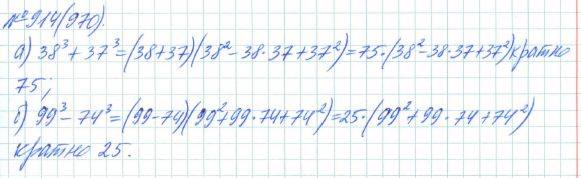 №914(970).
а) 38³ + 37³ = (38+37)(38² - 38·37 + 37²) = 75·(38² - 38·37 + 37²) кратно
75;
б) 99³ - 74³ = (99-74)(99² + 99·74 + 74²) = 25·(99² + 99·74 + 74²)
кратно 25.